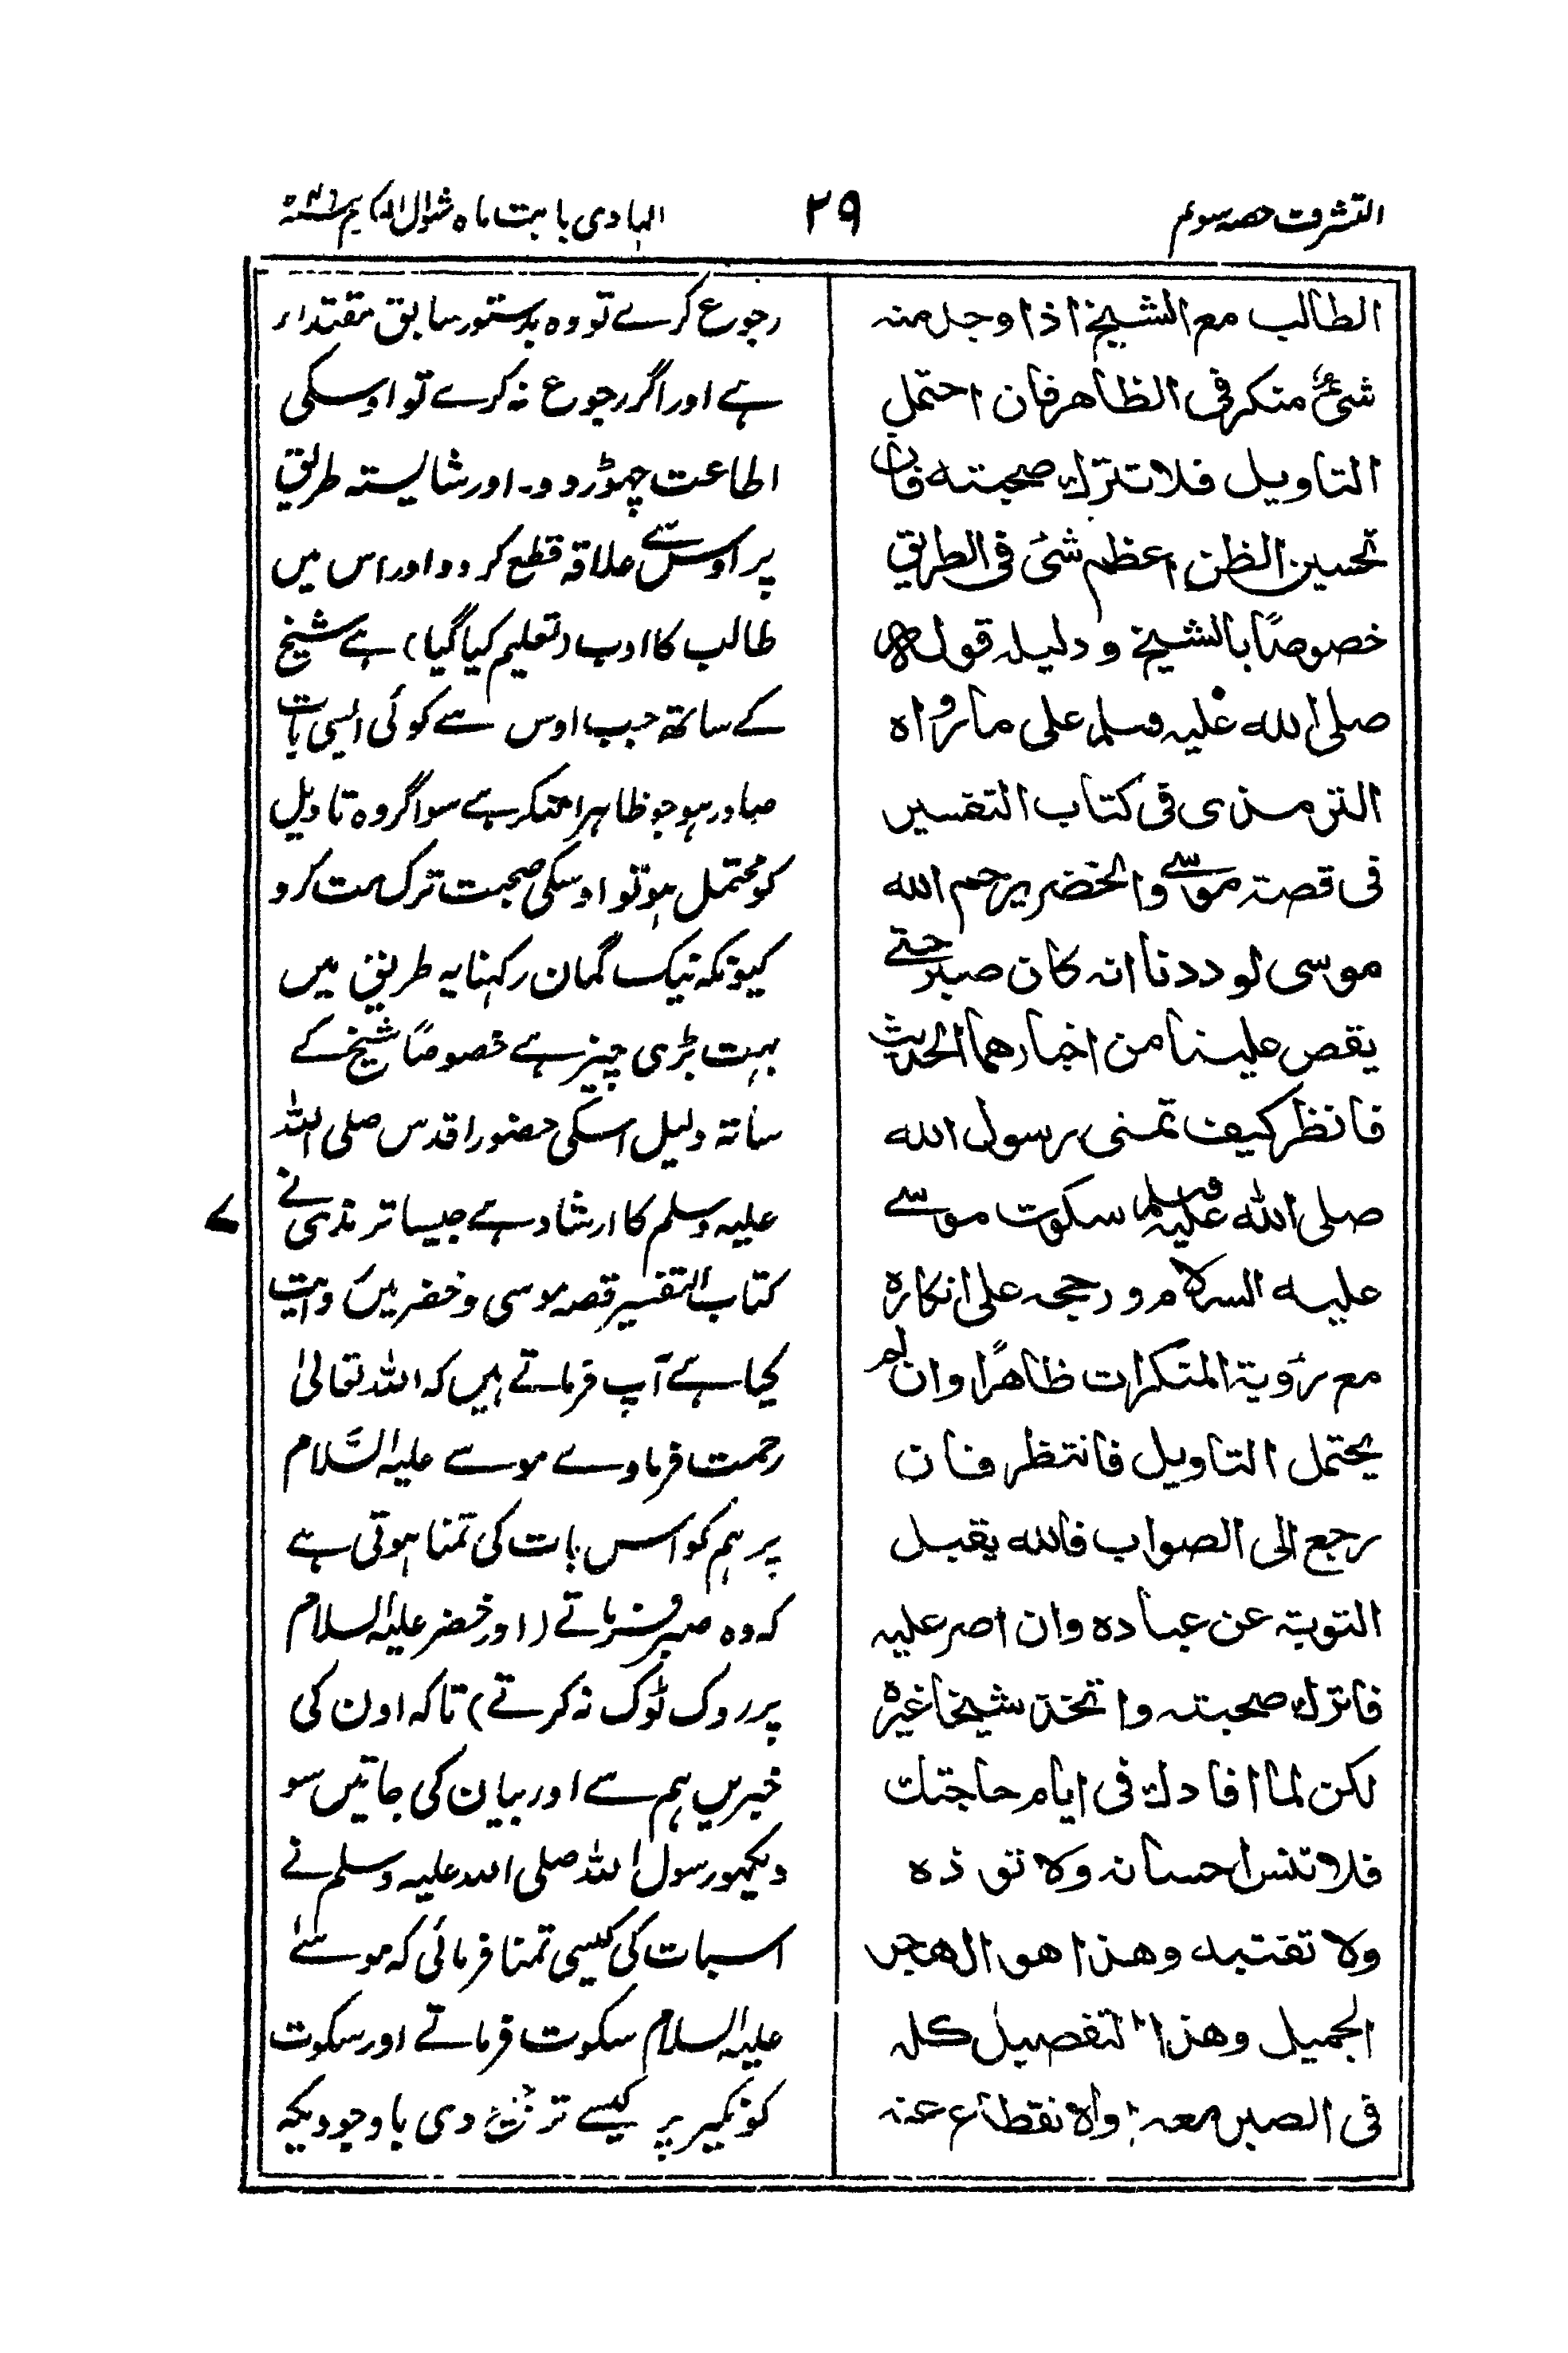 التشرف حصہ سوئم
۲۹
الہادی بابت ماہ شوال المکرم
الطالب مع الشیخ اذا وجد منہ
شیئ منکر فی الظاهر فان احتمل
التاویل فلا تترك صحبتہ فان
تحسین الظن اعظم شئ فی الطریق
خصوصًا بالشیخ و دلیلہ قولہ
صلی اللہ علیہ وسلم علی ما رواہ
الترمذی فی کتاب التفسیر
فی قصتہ موسے والخضر یرحم اللہ
موسی لوددنا انہ کان صبر حتے
یقص علینا من اخبارهما الحدیث
فانظر کیف تمنی رسول اللہ
صلی اللہ علیہ وسلم سکوت موسے
علیہ السلام و رجحہ علی انکارہ
مع رؤیۃ المنکرات ظاهرًا وان لم
یحتمل التاویل فانتظر فان
رجع الی الصواب فاللہ یقبل
التوبۃ عن عبادہ وان اصر علیہ
فاترك صحبتہ واتخذ شیخا غیرہ
لکن لما افادك فی ایام حاجتك
فلا تنس احسانہ ولا تؤذہ
ولا تغتبہ وهذا هو الهجر
الجمیل وهذا التفصیل کلہ
فی الصبر معہ والانقطاع عنہ
رجوع کرے تو وہ بدستور سابق مقتدار
ہے اور اگر رجوع نہ کرے تو اوسکی
اطاعت چھوڑ دو۔ اور شایستہ طریق
پر اوس سے علاقہ قطع کردو اور اس میں
طالب کا ادب (تعلیم کیا گیا) ہے شیخ
کے ساتھ جب اوس سے کوئی ایسی بات
صادر ہو جو ظاہرا منکر ہے سو اگر وہ تاویل
کو محتمل ہو تو اوسکی صحبت ترک مت کرو
کیونکہ نیک گمان رکہنا یہ طریق میں
بہت بڑی چیز ہے خصوصاً شیخ کے
ساتہ دلیل اسکی حضور اقدس صلی اللہ
علیہ وسلم کا ارشاد ہے جیسا ترمذی نے
کتاب التفسیر قصہ موسی و خضر میں روایت
کیا ہے آپ فرماتے ہیں کہ اللہ تعالیٰ
رحمت فرماوے موسے علیہ السَّلام
پر ہم کو اس بات کی تمنا ہوتی ہے
کہ وہ صبر فرماتے (اور خضر علیہ السلام
پر روک ٹوک نہ کرتے) تاکہ اون کی
خبریں ہم سے اور بیان کی جاتیں سو
دیکہو رسول اللہ صلی اللہ علیہ وسلم نے
اسبات کی کیسی تمنا فرمائی کہ موسےٰ
علیہ السلام سکوت فرماتے اور سکوت
کو نکیر پر کیسے ترجیح دی باوجودیکہ